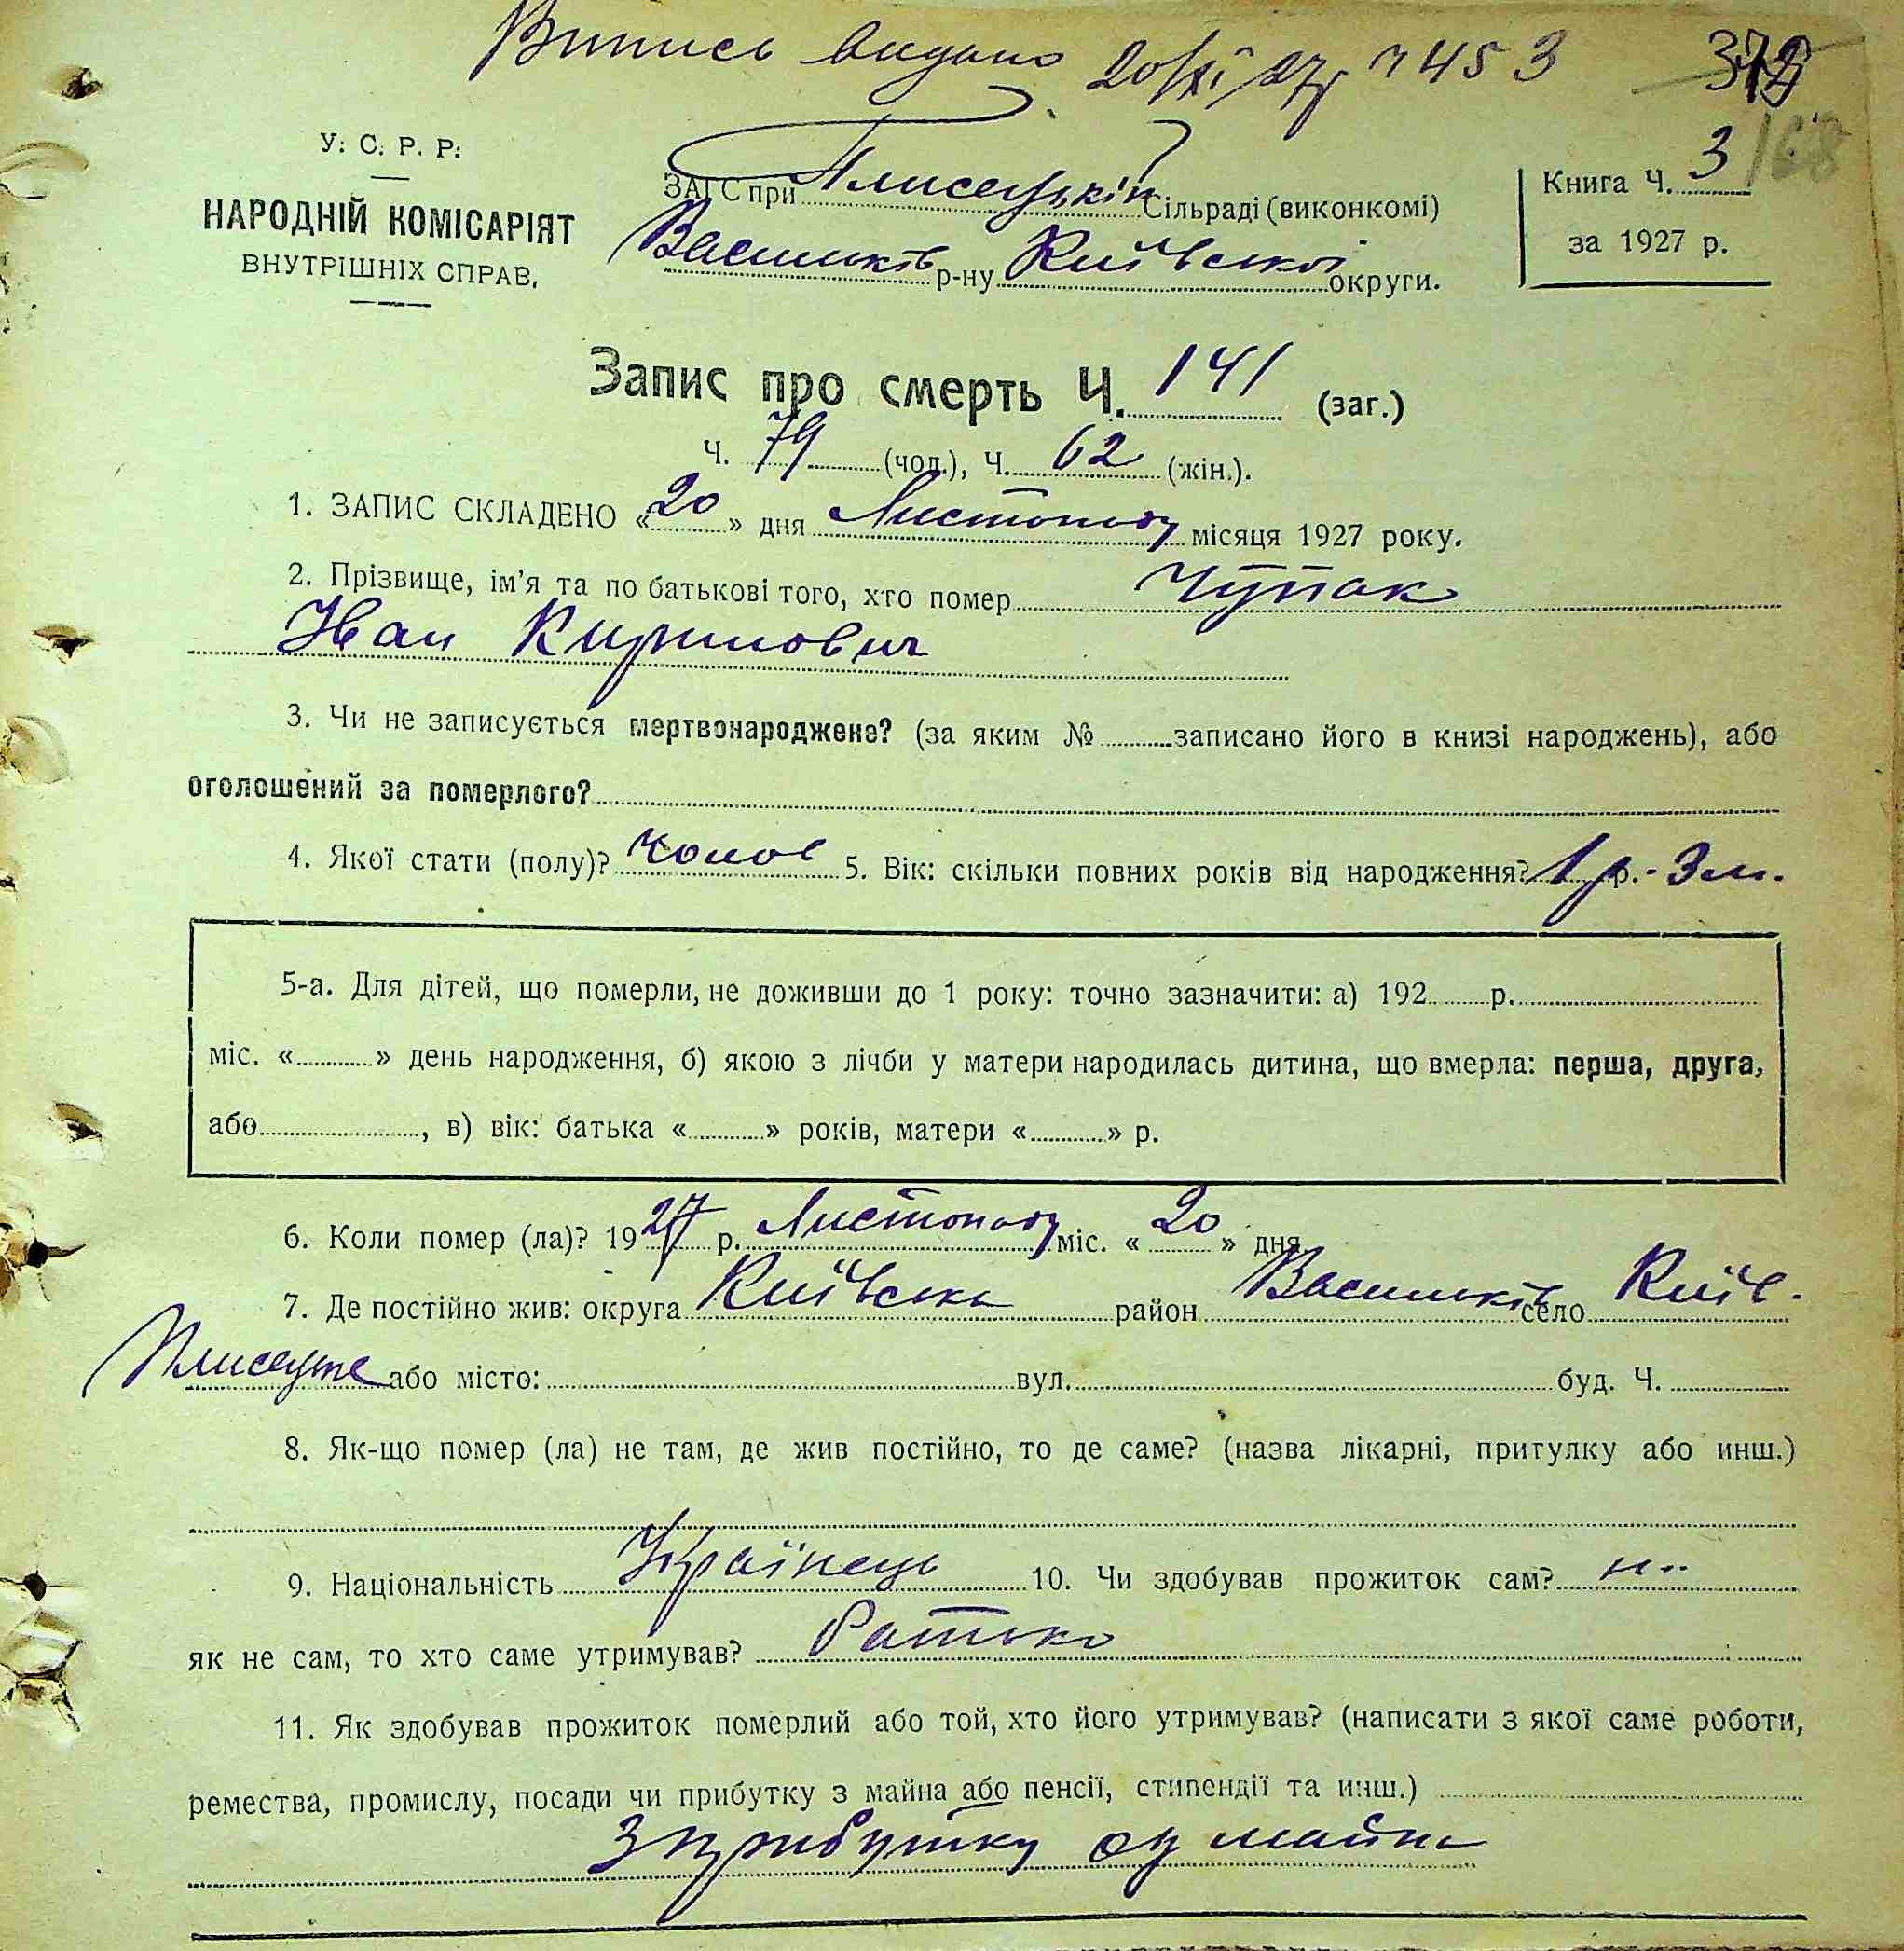 Випись видано 20/XI 27р ч 453
У. С. Р. Р.
НАРОДНІЙ КОМІСАРІЯТ
ВНУТРІШНІХ СПРАВ,
ЗАГС при Плисецькій Сільраді (виконкомі)
Васильків р-ну Київської округи.
Книга Ч. 3
за 1927 р.
Запис про смерть Ч. 141 (заг.)
Ч. 79 (чол.), Ч. 62 (жін.).
1. ЗАПИС СКЛАДЕНО «20» дня Листопаду місяця 1927 року.
2. Прізвище, ім'я та по батькові того, хто помер Чупак
Иван Кирилович
3. Чи не записується мертвонароджене? (за яким № записано його в книзі народжень), або
оголошений за померлого?
4. Якої стати (полу)? чолов 5. Вік: скільки повних років від народження? 1 р. - 3 м.
5-а. Для дітей, що померли, не доживши до 1 року: точно зазначити: а) 192 р.
міс. « » день народження, б) якою з лічби у матери народилась дитина, що вмерла: перша, друга,
або , в) вік: батька « » років, матери « » р.
6. Коли помер (ла)? 1927 р. Листопаду міс. «20» дня
7. Де постійно жив: округа Київська район Васильків село Київ.
Плисецьке або місто: вул. буд. Ч.
8. Як-що помер (ла) не там, де жив постійно, то де саме? (назва лікарні, притулку або инш.)
9. Національність Українець 10. Чи здобував прожиток сам?
як не сам, то хто саме утримував? батько
11. Як здобував прожиток померлий або той, хто його утримував? (написати з якої саме роботи,
ремества, промислу, посади чи прибутку з майна або пенсії, стипендії та инш.)
З прибутку від майна